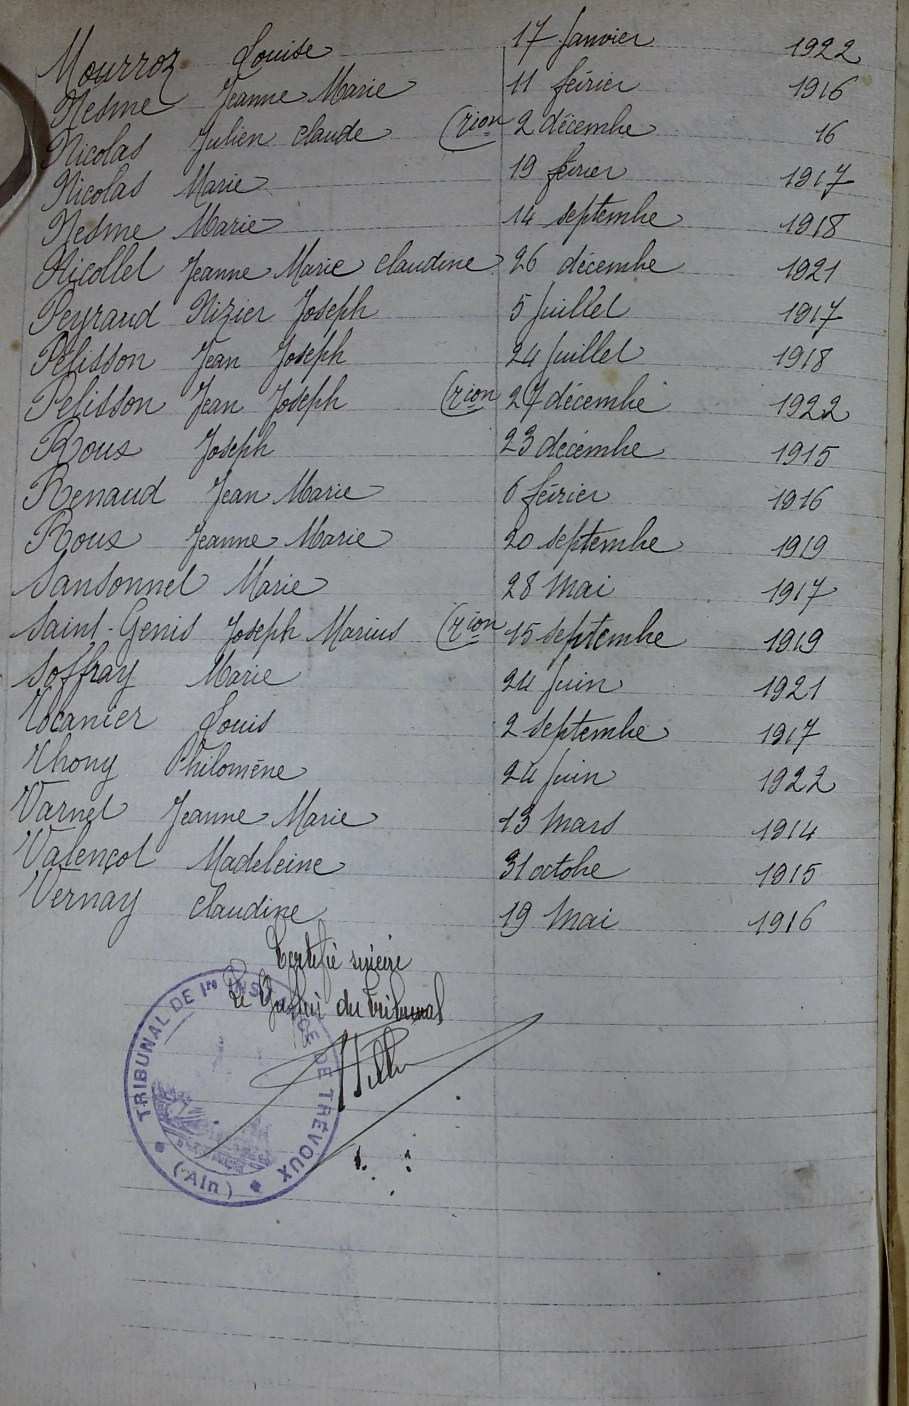 Mourroz Louise 17 Janvier 1922
Nesme Jeanne Marie 11 février 1916
Nicolas Julien Claude (rion 2 décembre 16
Nicolas Marie 19 février 1917
Nesme Marie 14 septembre 1918
Nicollet Jeanne Marie Claudine 26 décembre 1921
Peyraud Nizier Joseph 5 Juillet 1917
Pelisson Jean Joseph 24 Juillet 1918
Pelisson Jean Joseph (rion 27 décembre 1922
Roux Joseph 23 décembre 1915
Renaud Jean Marie 6 février 1916
Roux Jeanne Marie 20 septembre 1919
Sansonnet Marie 28 Mai 1917
Saint-Genis Joseph Marius (rion 15 septembre 1919
Soffray Marie 24 Juin 1921
Louis 2 septembre 1917
Thony Philomène 24 Juin 1922
Varnet Jeanne Marie 13 Mars 1914
Valençot Madeleine 31 octobre 1915
Vernay Claudine 19 Mai 1916
Certifié sincère
Le Greffier du Tribunal
TRIBUNAL DE 1re INSTANCE DE TRÉVOUX
(Ain)